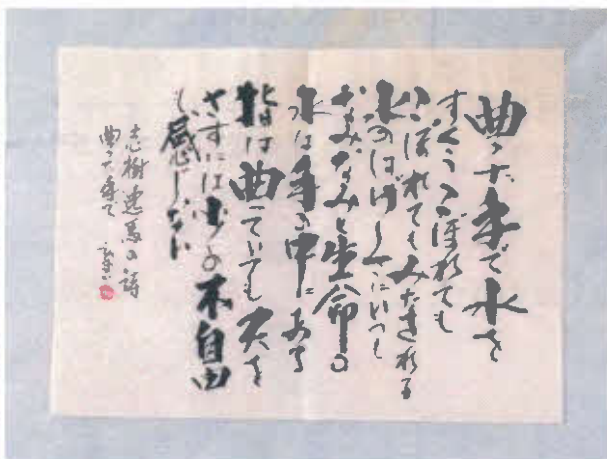 曲った手で水を
すくうこぼれても
こぼれてもみたされる
水のはげしさにいつも
なみなみと生命の
水は手の中にある
指は曲っていても天を
さすには少しの不自由
も感じない
志樹逸馬の詩
曲った手で